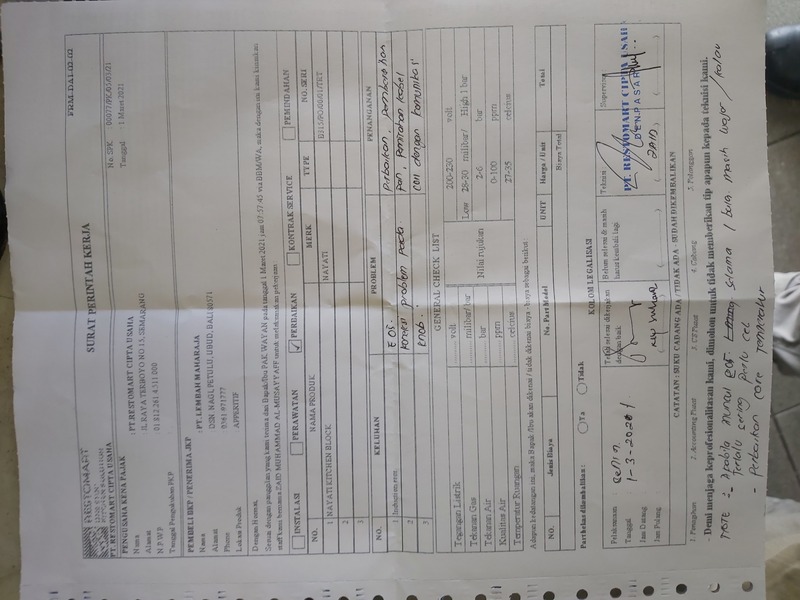 FRM-DAI-02-02
RESTOMART
SURAT PERINTAH KERJA
PT. RESTOMART CIPTA USAHA
No. SPK : 00077/PK/05/03/21
Tanggal : 1 Maret 2021
PENGUSAHA KENA PAJAK
Nama : PT.RESTOMART CIPTA USAHA
Alamat : JL RAYA TERBOYO NO 15, SEMARANG
N.P.W.P : 01.812.261.4.511.000
Tanggal Pengukuhan PKP
PEMBELI BKP / PENERIMA JKP
Nama : PT. LEMBAH MAHARAJA
Alamat : DSN. NAGI, PETULU, UBUD, BALI 80571
Phone : 0361 971777
Lokasi Produk : APPERITIF
Dengan Hormat,
Sesuai dengan panggilan yang kami terima dari Bapak/Ibu PAK WAYAN pada tanggal 1 Maret 2021 jam 07:57:45 via BBM/WA, maka dengan ini kami kirimkan
staff kami bernama ZAID MUHAMMAD AL-MUSAYYAFF untuk melaksanakan pekerjaan :
INSTALASI PERAWATAN ✓ PERBAIKAN KONTRAK SERVICE PEMINDAHAN
NO. NAMA PRODUK MERK TYPE NO. SERI
1 NAYATI KITCHEN BLOCK NAYATI B315/PO/00/01/TRT
2
3
NO. KELUHAN PROBLEM PENANGANAN
1 Induction error E 05. Perbaikan, pembersihan
2 koreksi problem pada pan, pemisahan kabel
3 knob. coil dengan komunikasi
GENERAL CHECK LIST
Tegangan Listrik .......... volt Nilai rujukan 200-230 volt
Tekanan Gas .......... milibar/ bar Low 28-30 milibar/ High 1 bar
Tekanan Air .......... bar 2-6 bar
Kualitas Air .......... ppm 0-100 ppm
Temperatur Ruangan .......... celcius 27-35 celcius
Adapun kedatangan ini, maka Bapak /Ibu akan dikenai / tidak dikenai biaya - biaya sebagai berikut :
NO. Jenis Biaya No. Part Model UNIT Harga / Unit Total
Biaya Total
Part bekas dikembalikan : Ya Tidak
KOLOM LEGALISASI
Pelaksanaan : Senin
Tanggal : 1-3-2021
Jam Datang :
Jam Pulang :
Telah selesai dikerjakan dengan baik
Belum selesai & masih harus kembali lagi
Teknisi
Supervisi
PT. RESTOMART CIPTA USAH
DENPASAR
ZAID
CATATAN : SUKU CADANG ADA / TIDAK ADA - SUDAH DIKEMBALIKAN
1. Penagihan 2. Accounting Pusat 3. CS Pusat 4. Cabang 5. Pelanggan
- Demi menjaga keprofesionalitasan kami, dimohon untuk tidak memberikan tip apapun kepada teknisi kami.
NOTE : - Apabila muncul E05. selama 1 bulan masih wajar / kalau
Terlalu sering perlu cek
- Perbaikan core Temperatur